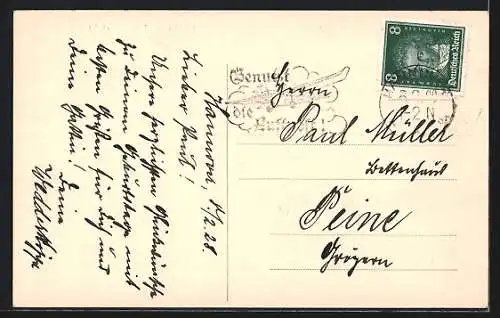 Hannover, 8/2.28.
Lieber Paul!
Unsere herzlichsten Glückwünsche
zu deinem Geburtstage mit
besten Grüßen für Dich und
Deine
Deine
Benutzt
die
Luftpost
8 8
Deutsches Reich
Herrn
Paul Müller
Bettenhaus
Peine